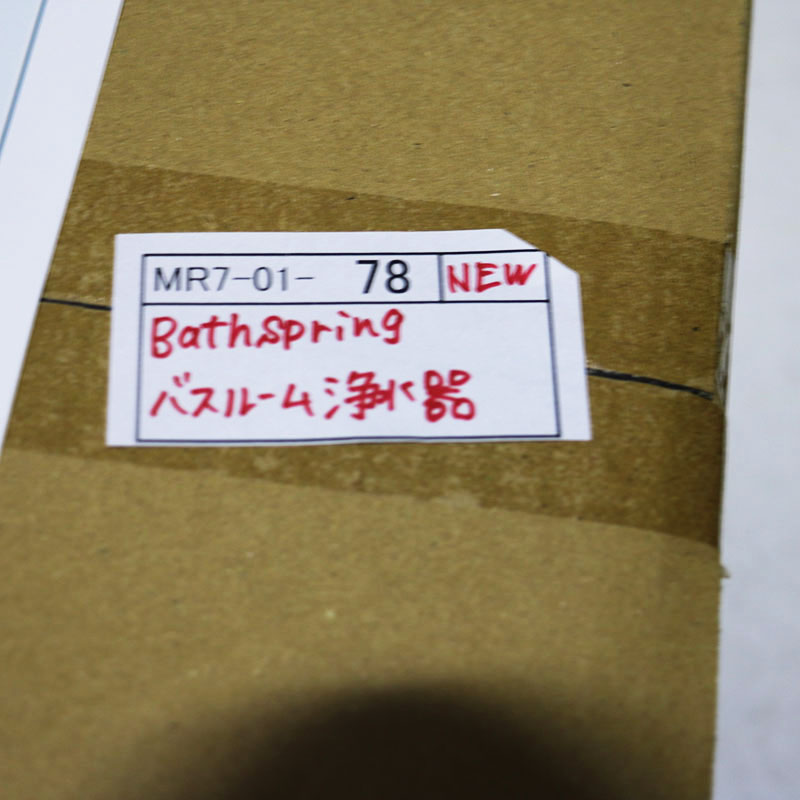 MR7-01- 78 NEW
Bathspring
バスルーム浄水器